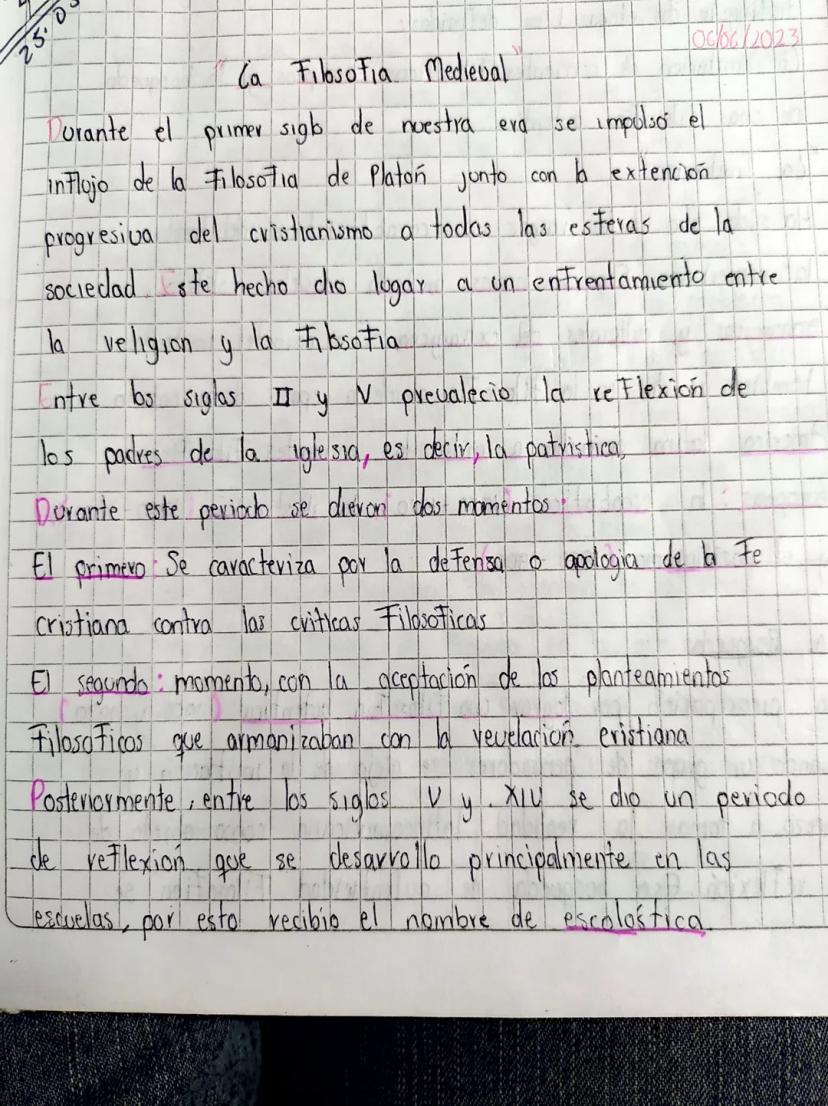 25.0
06/06/2023
"La Filosofia Medieval"
Durante el primer siglo de nuestra era se impulsó el
influjo de la Filosofia de Platoń junto con la extención
progresiva del cristianismo a todas las esferas de la
sociedad. Este hecho dio lugar a un enfrentamiento entre
la religion y la Filosofia
Entre los siglos II y V prevalecio la reflexión de
los padres de la iglesia, es decir, la patristica,
Durante este periodo se dieron dos momentos:
El primero: Se caracteriza por la defensa o apologia de la Fe
cristiana contra las criticas Filosoficas
El segundo: momento, con la aceptación de los planteamientos
Filosoficos que armonizaban con la revelación cristiana
Posteriormente, entre los siglos V y. XIV se dio un periodo
de reflexión que se desarrollo principalmente en las
escuelas, por esto recibio el nombre de escolástica.